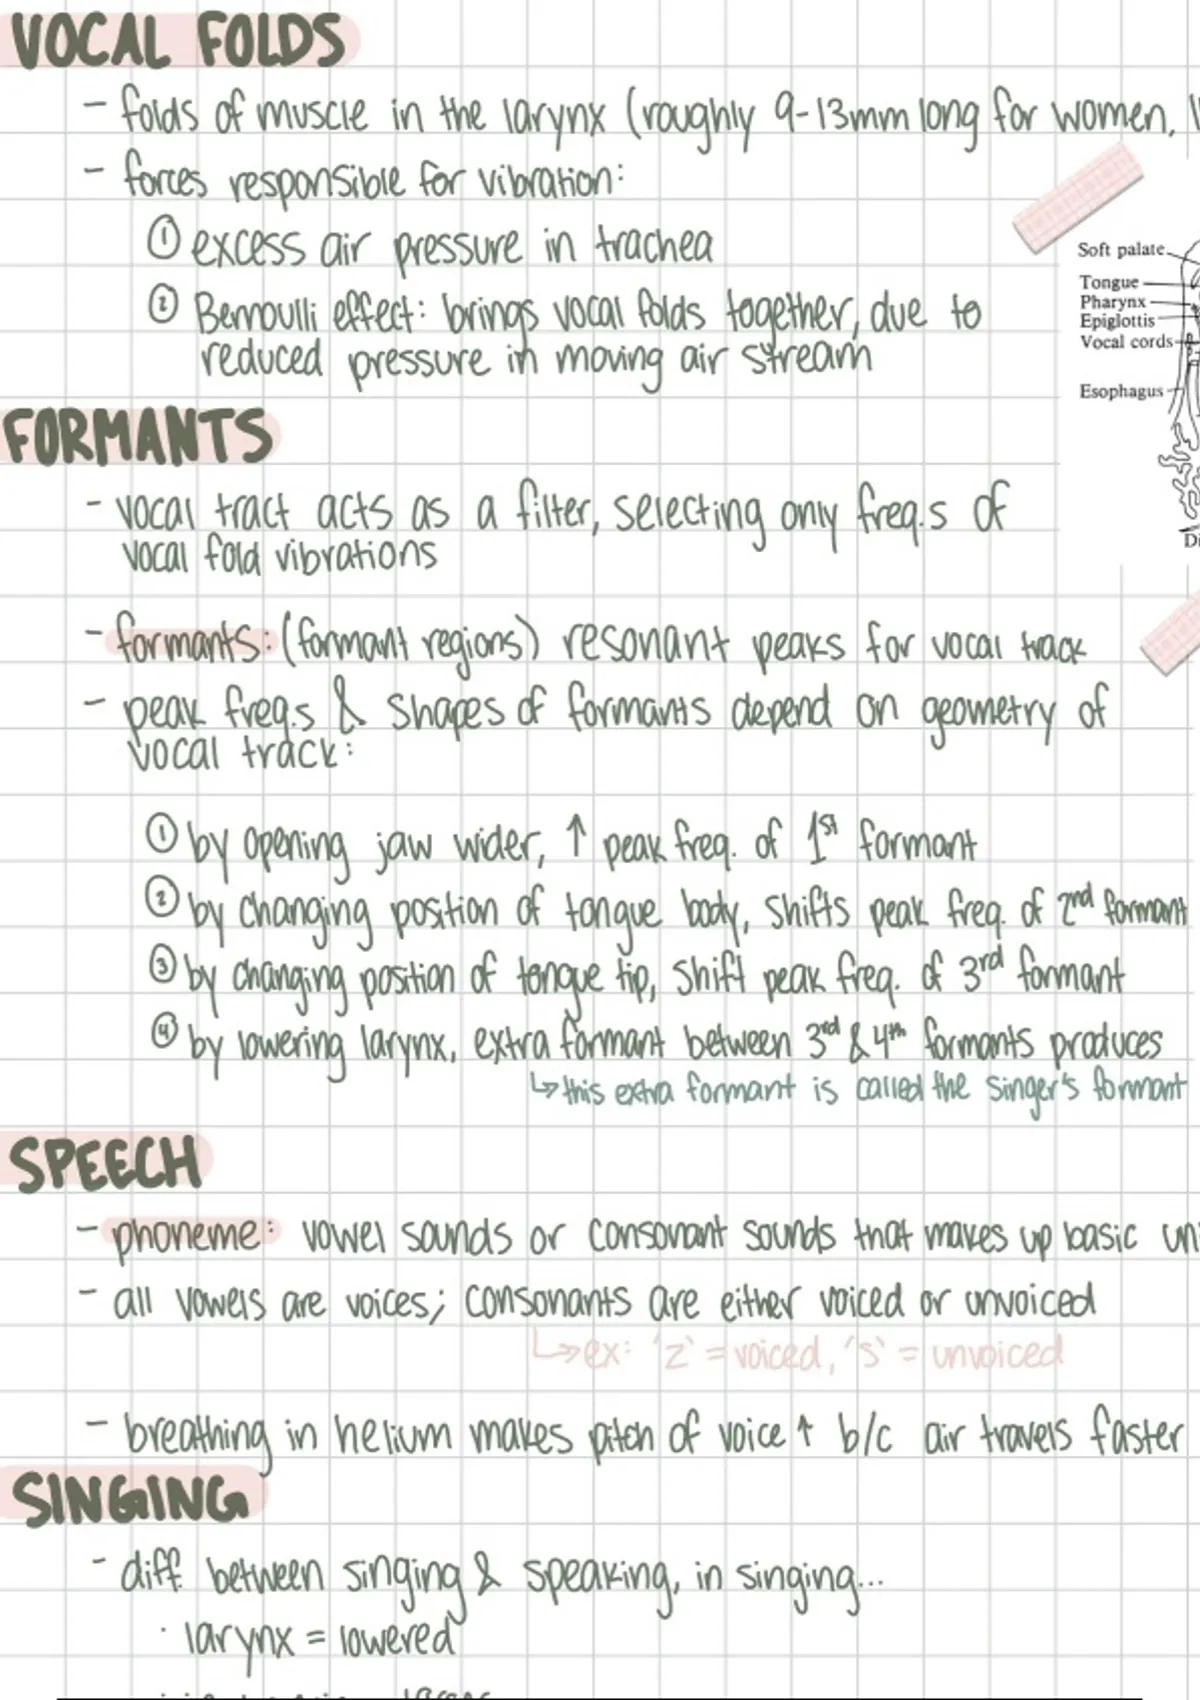 VOCAL FOLDS
- folds of muscle in the larynx (roughly 9-13mm long for women,
- forces responsible for vibration:
① excess air pressure in trachea
② Bernoulli effect: brings vocal folds together, due to
reduced pressure in moving air stream
Soft palate
Tongue
Pharynx
Epiglottis
Vocal cords
Esophagus
Di
FORMANTS
- vocal tract acts as a filter, selecting only freq.s of
vocal fold vibrations
- formants: (formant regions) resonant peaks for vocal track
- peak freq.s & shapes of formants depend on geometry of
vocal track:
① by opening jaw wider, ↑ peak freq. of 1st formant
② by changing position of tongue body, shifts peak freq. of 2nd formant
③ by changing position of tongue tip, shift peak freq. of 3rd formant
④ by lowering larynx, extra formant between 3rd & 4th formants produces
↳ this extra formant is called the singer's formant
SPEECH
- phoneme: vowel sounds or consonant sounds that makes up basic un
- all vowels are voices; consonants are either voiced or unvoiced
↳ ex: 'z' = voiced, 's' = unvoiced
- breathing in helium makes pitch of voice ↑ b/c air travels faster
SINGING
- diff. between singing & speaking, in singing...
· larynx = lowered